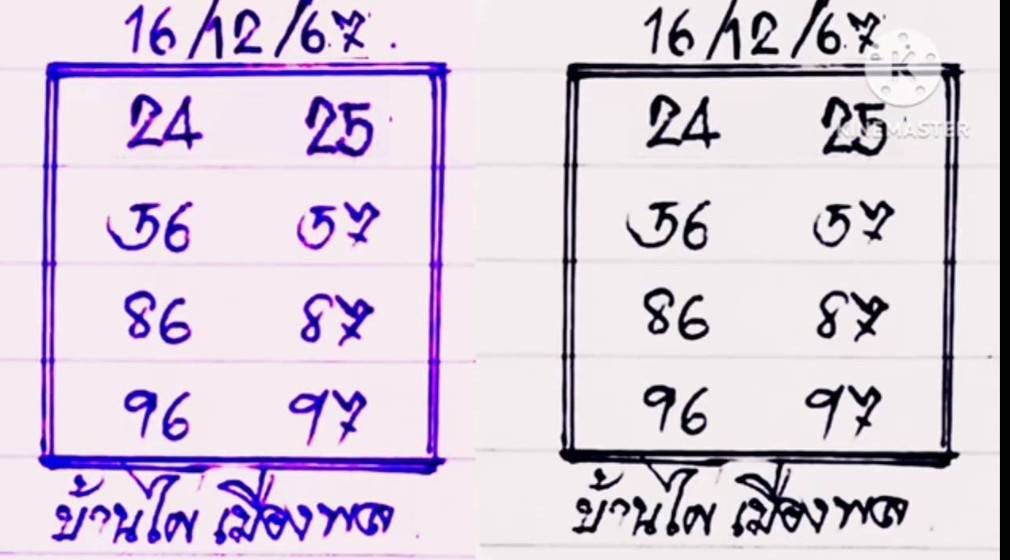 16/12/67.
24 25
56 57
86 87
96 97
บ้านไผ่ เมืองพล
16/12/67
24 25
56 57
86 87
96 97
บ้านไผ่ เมืองพล
KINEMASTER